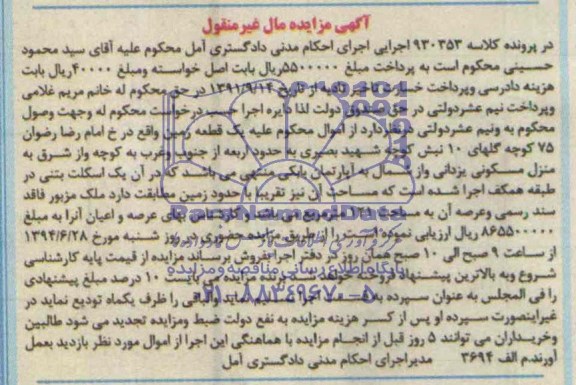 آگهی مزایده مال غیرمنقول
در پرونده کلاسه ۹۳۰۳۵۳ اجرایی اجرای احکام مدنی دادگستری آمل محکوم علیه آقای سید محمود
حسینی محکوم است به پرداخت مبلغ ۵۵۰۰۰۰۰۰ریال بابت اصل خواسته ومبلغ ۴۰۰۰۰ریال بابت
هزینه دادرسی وپرداخت خسارت تاخیر تادیه از تاریخ ۱۳۹۱/۹/۱۴ در حق محکوم له خانم مریم غلامی
وپرداخت نیم عشردولتی در حق صندوق دولت لذا دایره اجرا حسب درخواست محکوم له وجهت وصول
محکوم به ونیم عشردولتی درنظردارد از اموال محکوم علیه یک قطعه زمین واقع در خ امام رضا رضوان
۷۵ کوچه گلهای ۱۰ نبش کوچه شهید بصیری به حدود اربعه از جنوب وغرب به کوچه واز شرق به
منزل مسکونی یزدانی واز شمال به آپارتمان بابکی منتهی می باشد که در آن یک اسکلت بتنی در
طبقه همکف اجرا شده است که مساحت آن نیز تقریبا با حدود زمین مطابقت دارد ملک مزبور فاقد
سند رسمی وعرصه آن به مساحت مترمربع می باشد و کارشناس بهای عرصه و اعیان آنرا به مبلغ
۸۶۵۵۰۰۰۰۰ ریال ارزیابی نموده است را از طریق مزایده حضوری در روز شنبه مورخ ۱۳۹۴/۶/۲۸
از ساعت ۹ صبح الی ۱۰ صبح همان روز در دفتر اجرا بفروش برساند مزایده از قیمت پایه کارشناسی
شروع وبه بالاترین پیشنهاد فروخته خواهد شد برنده مزایده می بایست ۱۰ درصد مبلغ پیشنهادی
را فی المجلس به عنوان سپرده به قسمت اجرا تسلیم نماید والباقی را ظرف یکماه تودیع نماید در
غیراینصورت سپرده او پس از کسر هزینه مزایده به نفع دولت ضبط ومزایده تجدید می شود طالبین
وخریداران می توانند ۵ روز قبل از انجام مزایده با هماهنگی این اجرا از اموال مورد نظر بازدید بعمل
آورند.م الف ۳۶۹۴ مدیراجرای احکام مدنی دادگستری آمل
پایگاه اطلاع رسانی مناقصه ومزایده
۰۲۱-۸۸۳۴۹۶۷۰-۵